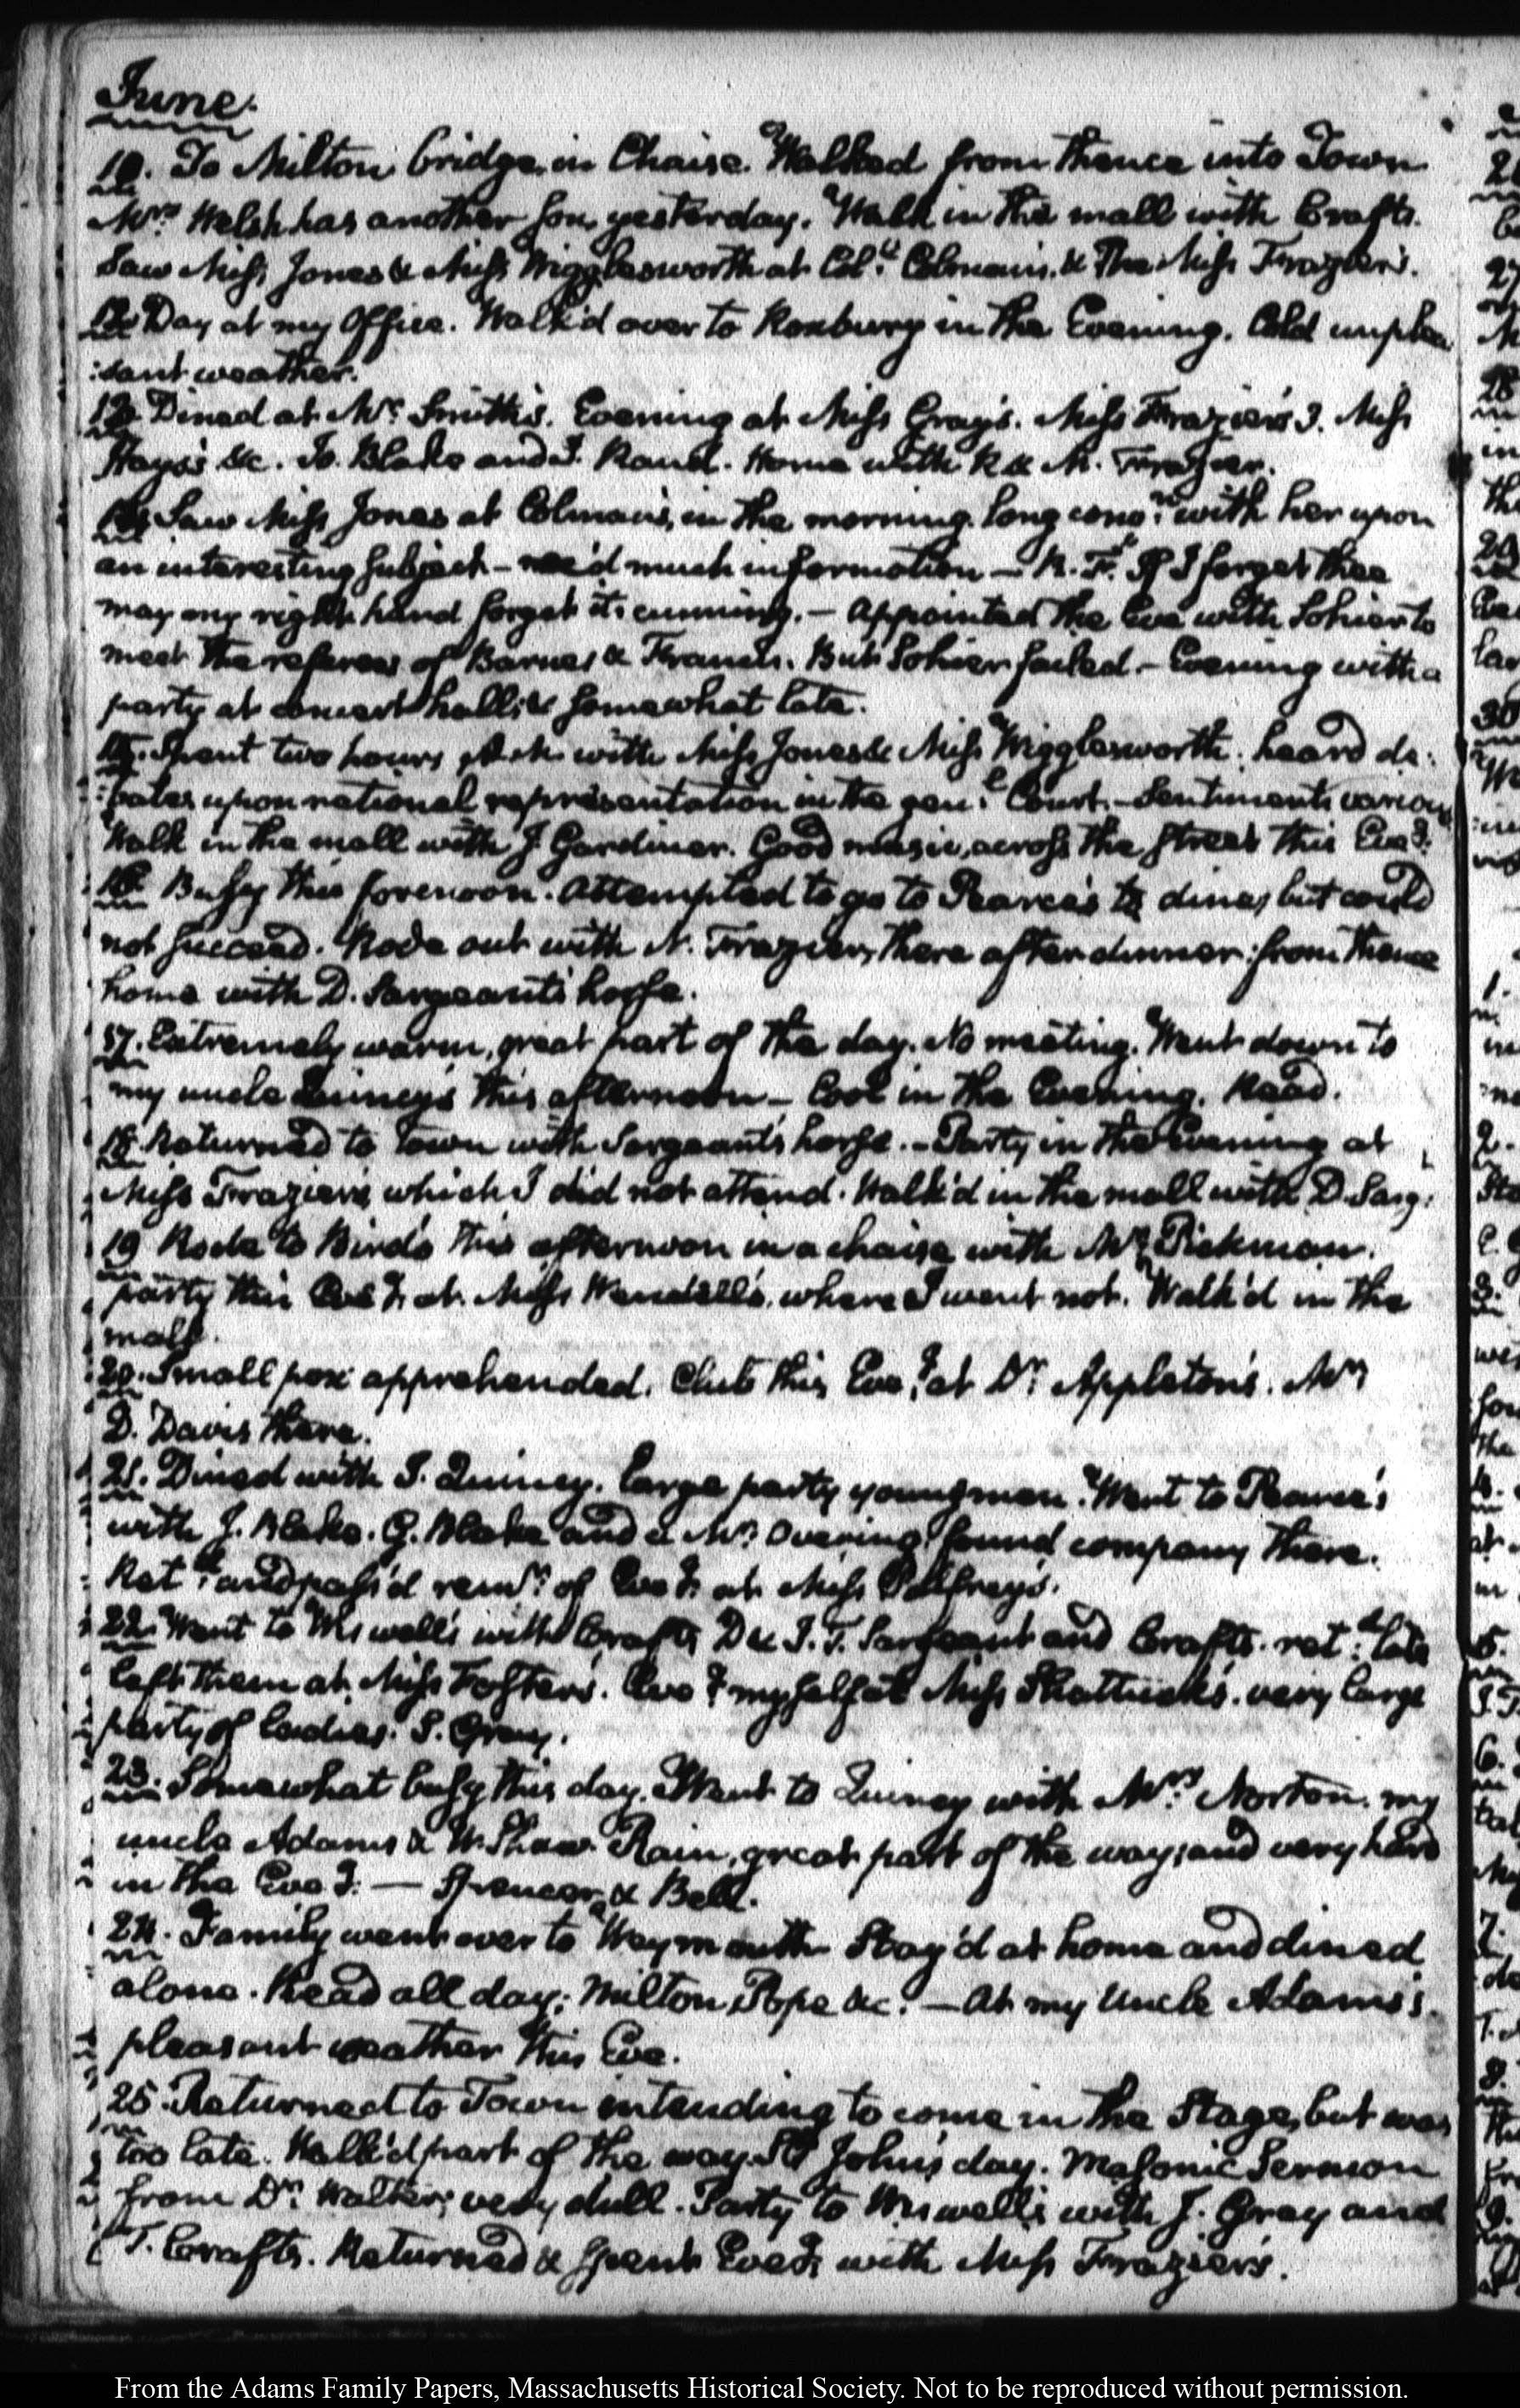 June.
To Milton bridge in Chaise. Walked from thence into Town
Mrs. Welsh has another Son, yesterday. Walk in the mall with Crafts.
Saw Miss Jones & Miss Wigglesworth at Coll. Colman's. & The Miss Frazier's.
Day at my Office. Walk'd over to Roxbury in the Evening. Cold unplea
:sant weather.
Dined at Mr. Smith's. Evening at Miss Gray's. Miss Frazier's 3. Miss
Hays's &c. Jo. Blake and I. Rand. Home with & M. Frazier.
Saw Miss Jones at Colman's, in the morning. long conv:n with her upon
an interesting subject - rec'd much information — If I forget thee
may my right hand forget its cunning. — Appointed the Eve with Sohier to
meet the referees of Barnes & Francis. But Sohier failed. — Evening with a
party at concert hall; & somewhat late.
15. Spent two hours A.M. with Miss Jones & Miss Wigglesworth. heard de:
:bates upon national representation in the gen:l Court. — Sentiments various
Walk in the mall with J. Gardiner. Good music, across the street this Eve.g
16. Busy this forenoon. Attempted to go to Pearce's to dine, but could
not succeed. Rode out with N. Frazier, there after dinner: from thence
home with D. Sargeant's horse.
17. Extremely warm, great part of the day. No meeting. Went down to
my uncle Quincy's this afternoon — Cool in the Evening. Read.
18. Returned to town with Sargeant's horse. — Party in the Evening at
Miss Frazier's, which I did not attend. Walk'd in the mall with D. Sarg:t
19 Rode to Bird's this afternoon in a chaise with Mr. Pickman.
party this Eve.g at Miss Wendell's. where I went not. Walk'd in the
mall.
20. Small pox apprehended. Club this Eve.g at Dr. Appleton's. Mr.
D. Davis there.
21. Dined with J. Quincy. large party young men. Went to Pearce's
with J. Blake. G. Blake and a Mr. Overing. found company there.
Ret:d and pass'd rem.r of Eve.g at Miss Palfrey's.
22. Went to Wiswell's with Crafts, D & J. T. Sargeant and Crafts. ret:d late
left them at Miss Foster's. Eve.g myself at Miss Shattuck's. very large
party of ladies. S. Gray.
23. Somewhat busy this day. Went to Quincy with Mrs. Norton. my
uncle Adams & W. Shaw. Rain, great part of the way; and very hard
in the Eve.g — Spencer, & Bell.
24. Family went over to Weymouth. Stay'd at home and dined
alone. Read all day; Milton, Pope &c. — At my Uncle Adams's.
pleasant weather this Eve.
25. Returned to Town intending to come in the Stage, but was
too late. Walk'd part of the way. St John's day. Masonic Sermon
from Dr. Walter; very dull. Party to Wiswell's with J. Gray and
T. Crafts. Returned & spent Eve.g with Miss Frazier's.
From the Adams Family Papers, Massachusetts Historical Society. Not to be reproduced without permission.